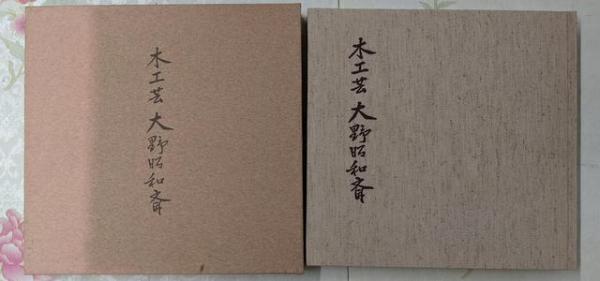 木工芸 大野昭和斎
木工芸 大野昭和斎